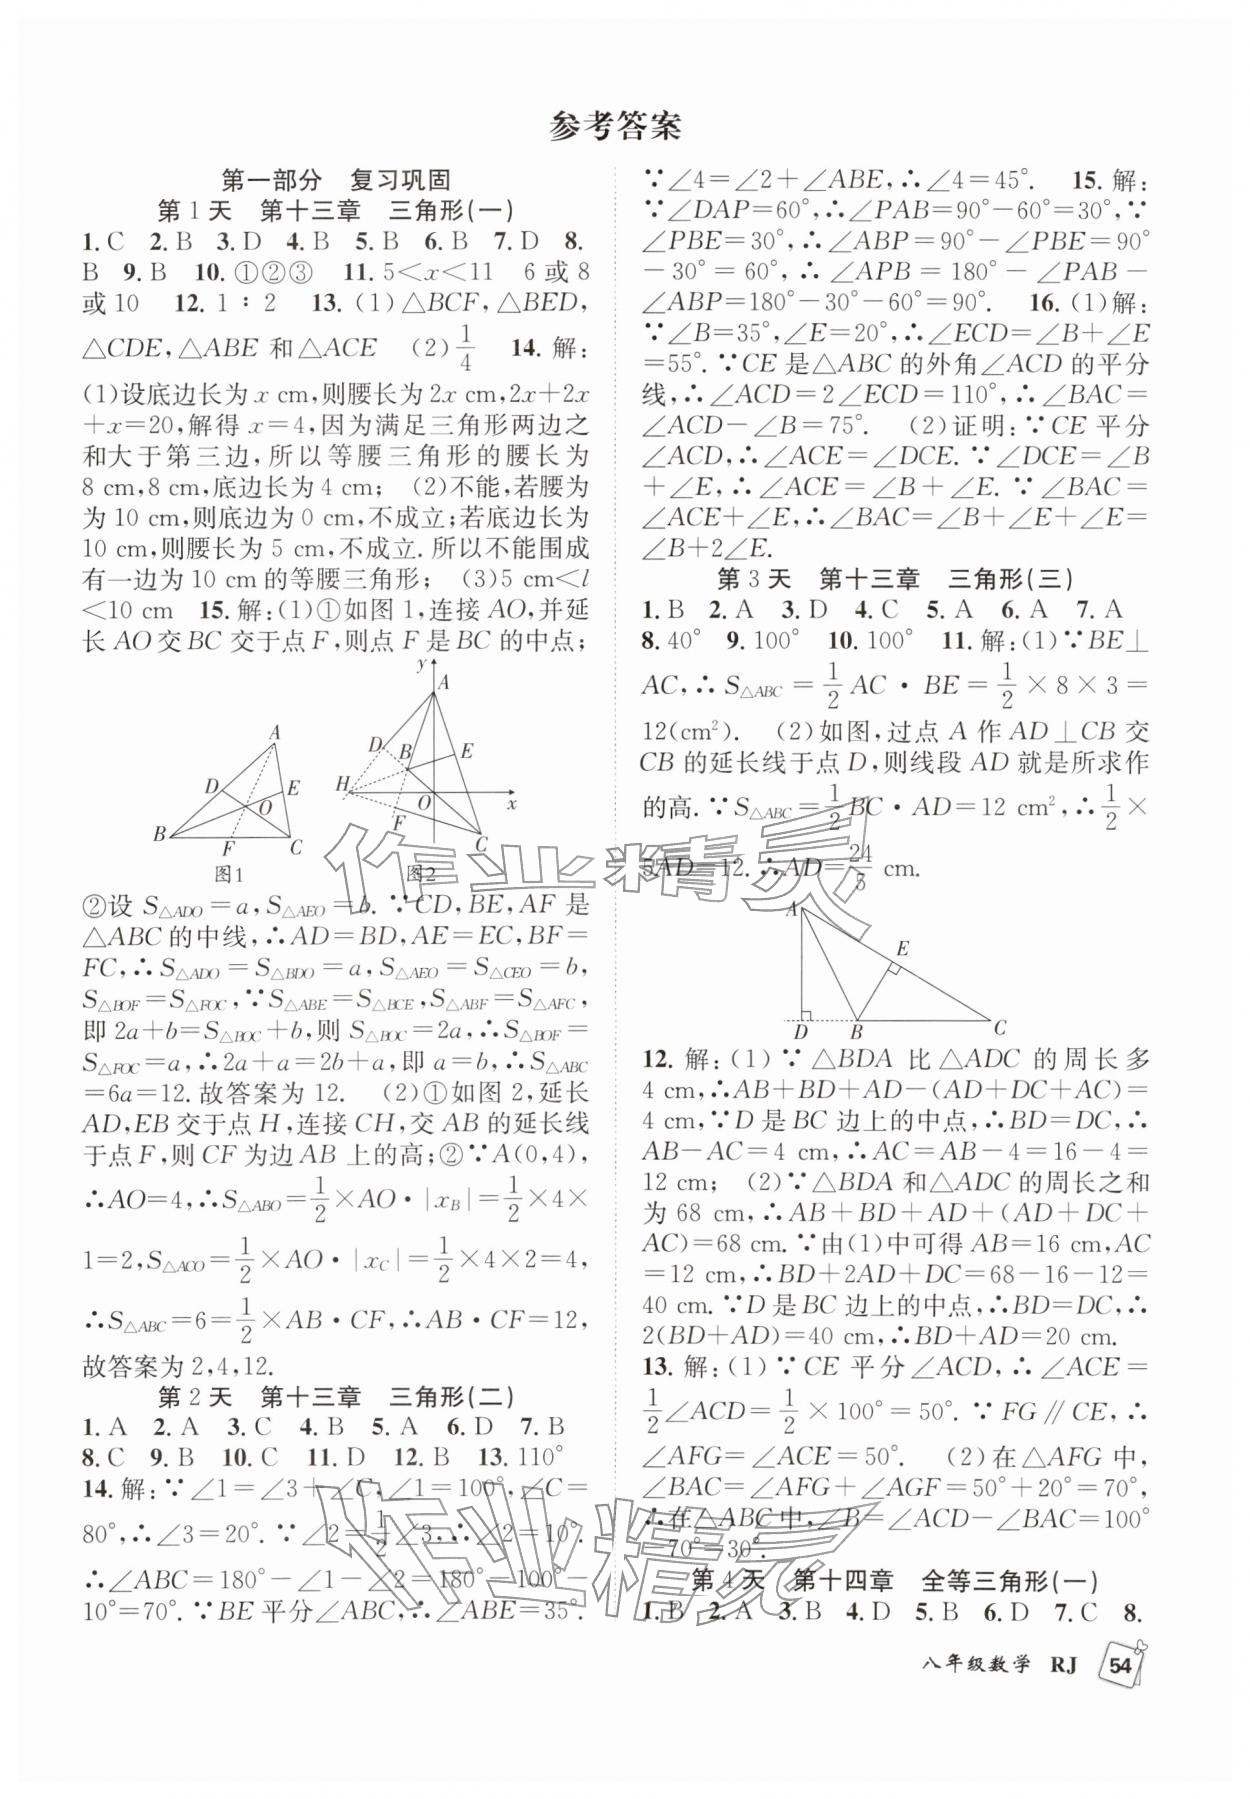 参考答案
第一部分　复习巩固
第1天　第十三章　三角形(一)
1.C　2.B　3.D　4.B　5.B　6.B　7.D　8.
B　9.B　10.①②③　11.5<x<11　6或8
或10　12.1∶2　13.(1)△BCF,△BED,
△CDE,△ABE和△ACE　(2)1/4　14.解:
(1)设底边长为x cm,则腰长为2x cm,2x+2x
+x=20,解得x=4,因为满足三角形两边之
和大于第三边,所以等腰三角形的腰长为
8 cm,8 cm,底边长为4 cm;　(2)不能,若腰为
为10 cm,则底边为0 cm,不成立;若底边长为
10 cm,则腰长为5 cm,不成立.所以不能围成
有一边为10 cm的等腰三角形;　(3)5 cm<l
<10 cm　15.解:(1)①如图1,连接AO,并延
长AO交BC交于点F,则点F是BC的中点;
A
D
E
O
B
F
C
图1
y
A
D
B
E
H
O
x
F
C
图2
②设S△ADO=a,S△AEO=b.∵CD,BE,AF是
△ABC的中线,∴AD=BD,AE=EC,BF=
FC,∴S△ADO=S△BDO=a,S△AEO=S△CEO=b,
S△BOF=S△FOC,∵S△ABE=S△BCE,S△ABF=S△AFC,
即2a+b=S△BOC+b,则S△BOC=2a,∴S△BOF=
S△FOC=a,∴2a+a=2b+a,即a=b,∴S△ABC
=6a=12.故答案为12.　(2)①如图2,延长
AD,EB交于点H,连接CH,交AB的延长线
于点F,则CF为边AB上的高;②∵A(0,4),
∴AO=4,∴S△ABO=1/2×AO·|xB|=1/2×4×
1=2,S△ACO=1/2×AO·|xC|=1/2×4×2=4,
∴S△ABC=6=1/2×AB·CF,∴AB·CF=12,
故答案为2,4,12.
第2天　第十三章　三角形(二)
1.A　2.A　3.C　4.B　5.A　6.D　7.B
8.C　9.B　10.C　11.D　12.B　13.110°
14.解:∵∠1=∠3+∠C,∠1=100°,∠C=
80°,∴∠3=20°.∵∠2=1/2∠3,∴∠2=10°.
∴∠ABC=180°-∠1-∠2=180°-100°-
10°=70°.∵BE平分∠ABC,∴∠ABE=35°.
∵∠4=∠2+∠ABE,∴∠4=45°.　15.解:
∵∠DAP=60°,∴∠PAB=90°-60°=30°,∵
∠PBE=30°,∴∠ABP=90°-∠PBE=90°
-30°=60°,∴∠APB=180°-∠PAB-
∠ABP=180°-30°-60°=90°.　16.(1)解:
∵∠B=35°,∠E=20°,∴∠ECD=∠B+∠E
=55°.∵CE是△ABC的外角∠ACD的平分
线,∴∠ACD=2∠ECD=110°,∴∠BAC=
∠ACD-∠B=75°.　(2)证明:∵CE平分
∠ACD,∴∠ACE=∠DCE.∵∠DCE=∠B
+∠E,∴∠ACE=∠B+∠E.∵∠BAC=
∠ACE+∠E,∴∠BAC=∠B+∠E+∠E=
∠B+2∠E.
第3天　第十三章　三角形(三)
1.B　2.A　3.D　4.C　5.A　6.A　7.A
8.40°　9.100°　10.100°　11.解:(1)∵BE⊥
AC,∴S△ABC=1/2AC·BE=1/2×8×3=
12(cm²).　(2)如图,过点A作AD⊥CB交
CB的延长线于点D,则线段AD就是所求作
的高.∵S△ABC=1/2BC·AD=12 cm²,∴1/2×
5AD=12.∴AD=24/5 cm.
A
E
D
B
C
12.解:(1)∵△BDA比△ADC的周长多
4 cm,∴AB+BD+AD-(AD+DC+AC)=
4 cm,∵D是BC边上的中点,∴BD=DC,∴
AB-AC=4 cm,∴AC=AB-4=16-4=
12 cm;　(2)∵△BDA和△ADC的周长之和
为68 cm,∴AB+BD+AD+(AD+DC+
AC)=68 cm.∵由(1)中可得AB=16 cm,AC
=12 cm,∴BD+2AD+DC=68-16-12=
40 cm.∵D是BC边上的中点,∴BD=DC,∴
2(BD+AD)=40 cm,∴BD+AD=20 cm.
13.解:(1)∵CE平分∠ACD,∴∠ACE=
1/2∠ACD=1/2×100°=50°.∵FG∥CE,∴
∠AFG=∠ACE=50°.　(2)在△AFG中,
∠BAC=∠AFG+∠AGF=50°+20°=70°,
∴在△ABC中,∠B=∠ACD-∠BAC=100°
-70°=30°.
第4天　第十四章　全等三角形(一)
1.B　2.A　3.B　4.D　5.B　6.D　7.C　8.
八年级数学　RJ　54
作业精灵
作业精灵